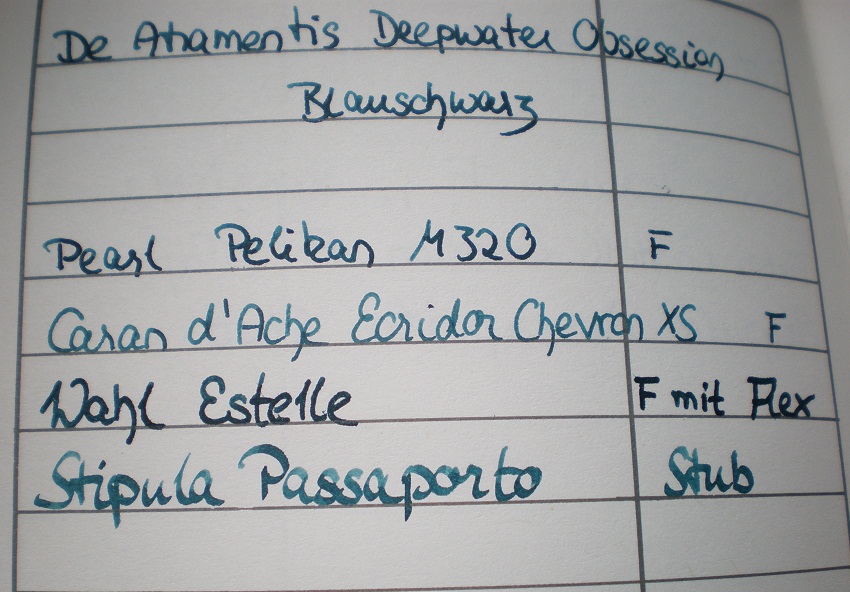 De Atramentis Deepwater Obsession
Blauschwarz
Pearl Pelikan M320 F
Caran d'Ache Ecridor Chevron XS F
Wahl Estelle F mit Flex
Stipula Passaporto Stub